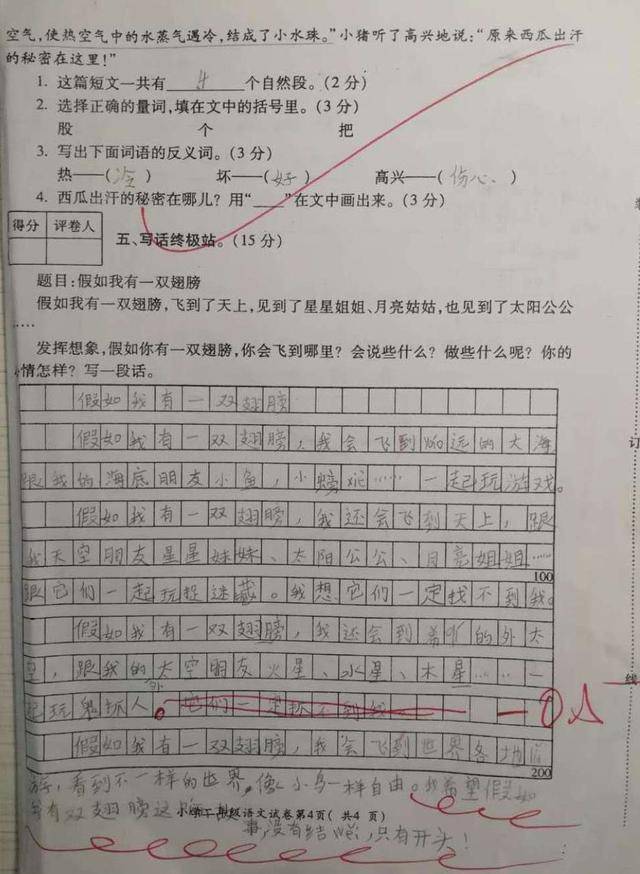 空气，使热空气中的水蒸气遇冷，结成了小水珠。”小猪听了高兴地说：“原来西瓜出汗
的秘密在这里！”
1. 这篇短文一共有 4 个自然段。（2分）
2. 选择正确的量词，填在文中的括号里。（3分）
股 个 把
3. 写出下面词语的反义词。（3分）
热——（冷） 坏——（好） 高兴——（伤心）
4. 西瓜出汗的秘密在哪儿？用“____”在文中画出来。（3分）
得分 评卷人
五、写话终极站。（15分）
题目：假如我有一双翅膀
假如我有一双翅膀，飞到了天上，见到了星星姐姐、月亮姑姑，也见到了太阳公公
……
发挥想象，假如你有一双翅膀，你会飞到哪里？会说些什么？做些什么呢？你的
情怎样？写一段话。
假如我有一双翅膀
假如我有一双翅膀，我会飞到遥远的大海
跟我的海底朋友小鱼，小螃蟹……一起玩游戏。
假如我有一双翅膀，我还会飞到天上，跟
我天空朋友星星妹妹、太阳公公、月亮姐姐……
100
跟它们一起玩捉迷藏。我想它们一定找不到我。
假如我有一双翅膀，我还会到美丽的外太
空，跟我的太空朋友火星、水星、木星……一
起玩鬼抓人。它们一定抓不到我
假如我有一双翅膀，我会飞到世界各地
200
看到不一样的世界，像小鸟一样自由。我希望假如
我有双翅膀这
小学二年级语文试卷第4页（共4页）
事，没有结 ，只有开头！
订
线